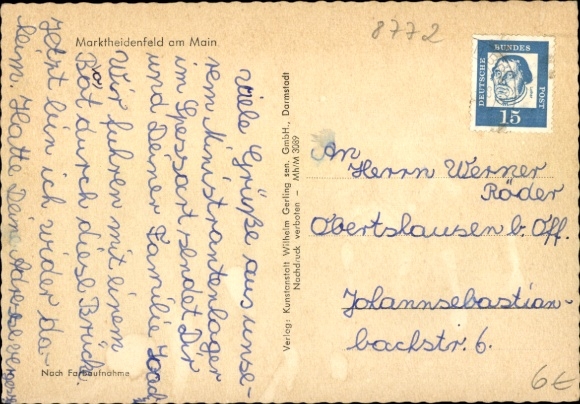 8772
Marktheidenfeld am Main
Viele Grüße aus unse-
rem Ministrantenlager
im Spessart, sendet Dir
und Deiner Familie
Wir fuhren mit einem
Bot durch diese Brücke.
Jetzt bin ich wider da-
heim. Hatte Deine Adresse
Nach Farbaufnahme
Verlag: Kunstanstalt Wilhelm Gerling sen. GmbH., Darmstadt
Nachdruck verboten – Mh/M 3089
DEUTSCHE BUNDES POST
15
An
Herrn Werner
Röder
Obertshausen b. Off.
Johannsebastian-
bachstr. 6.
6€